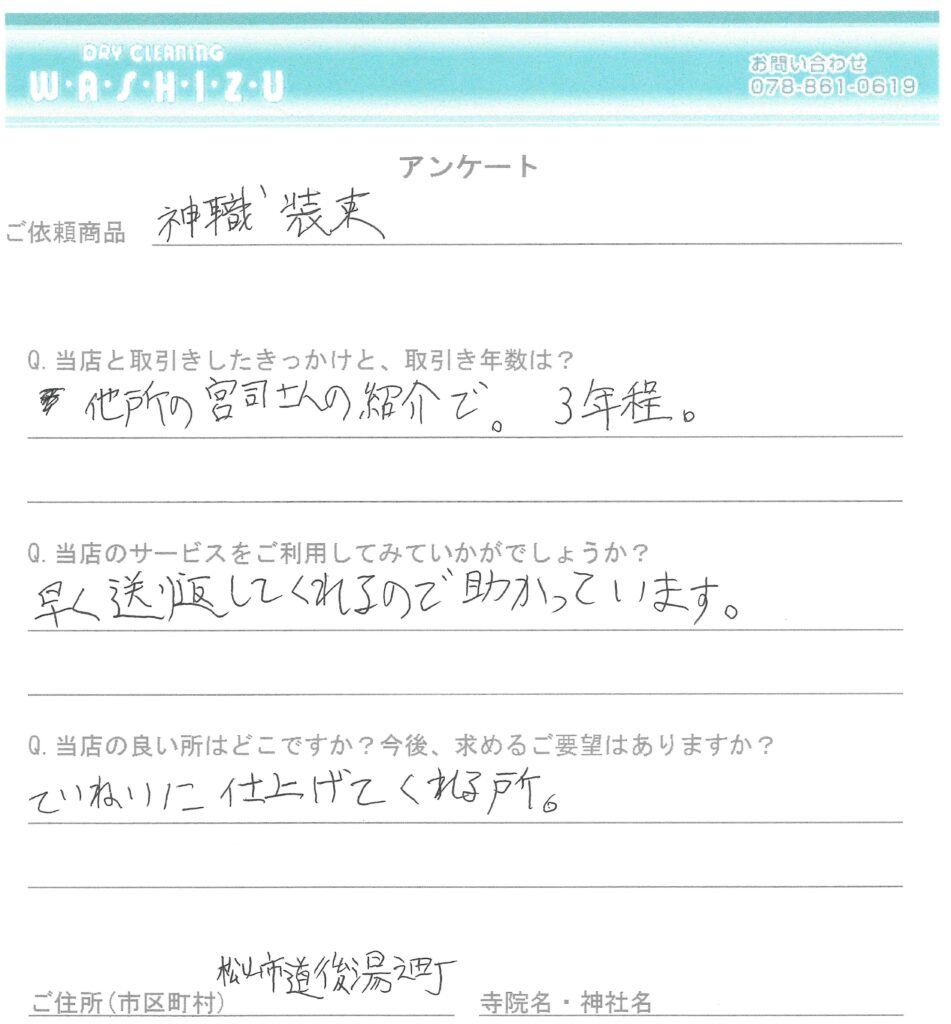 DRY CLEANING
W・A・S・H・I・Z・U
お問い合わせ
078-861-0619
アンケート
ご依頼商品 神職装束
Q.当店と取引きしたきっかけと、取引き年数は？
他所の宮司さんの紹介で。 3年程。
Q.当店のサービスをご利用してみていかがでしょうか？
早く送り返してくれるので助かっています。
Q.当店の良い所はどこですか？今後、求めるご要望はありますか？
ていねいに仕上げてくれる所。
ご住所(市区町村) 松山市道後湯之町
寺院名・神社名